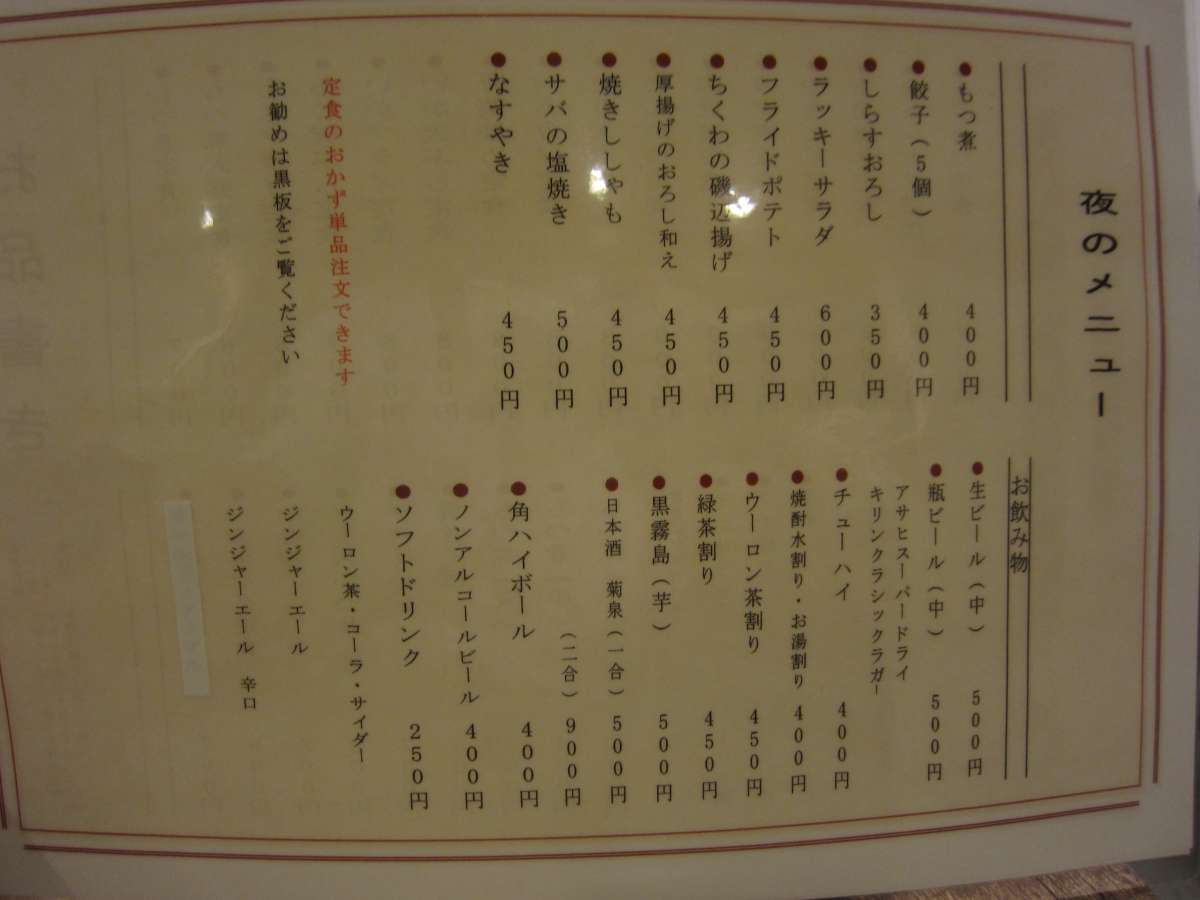 夜のメニュー
●もつ煮 400円
●餃子(5個) 400円
●しらすおろし 350円
●ラッキーサラダ 600円
●フライドポテト 450円
●ちくわの磯辺揚げ 450円
●厚揚げのおろし和え 450円
●焼きししゃも 450円
●サバの塩焼き 500円
●なすやき 450円
定食のおかず単品注文できます
お勧めは黒板をご覧ください
お飲み物
●生ビール(中) 500円
●瓶ビール(中) 500円
アサヒスーパードライ
キリンクラシックラガー
●チューハイ 400円
●焼酎水割り・お湯割り 400円
●ウーロン茶割り 450円
●緑茶割り 450円
●黒霧島(芋) 500円
●日本酒 菊泉(一合) 500円
(二合) 900円
●角ハイボール 400円
●ノンアルコールビール 400円
●ソフトドリンク 250円
ウーロン茶・コーラ・サイダー
ジンジャーエール
ジンジャーエール 辛口